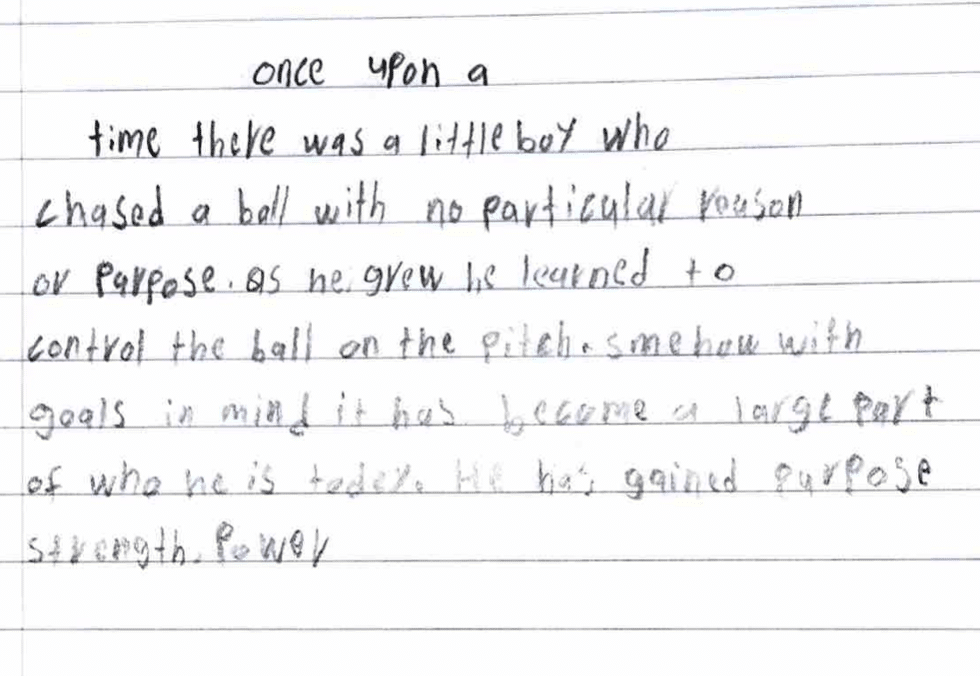 once upon a
time there was a little boy who
chased a ball with no particular reason
or Parpose. as he grew he learned to
control the ball on the pitch. smehow with
goals in mind it has become a large part
of who he is today. He has gained purpose
strength. Power